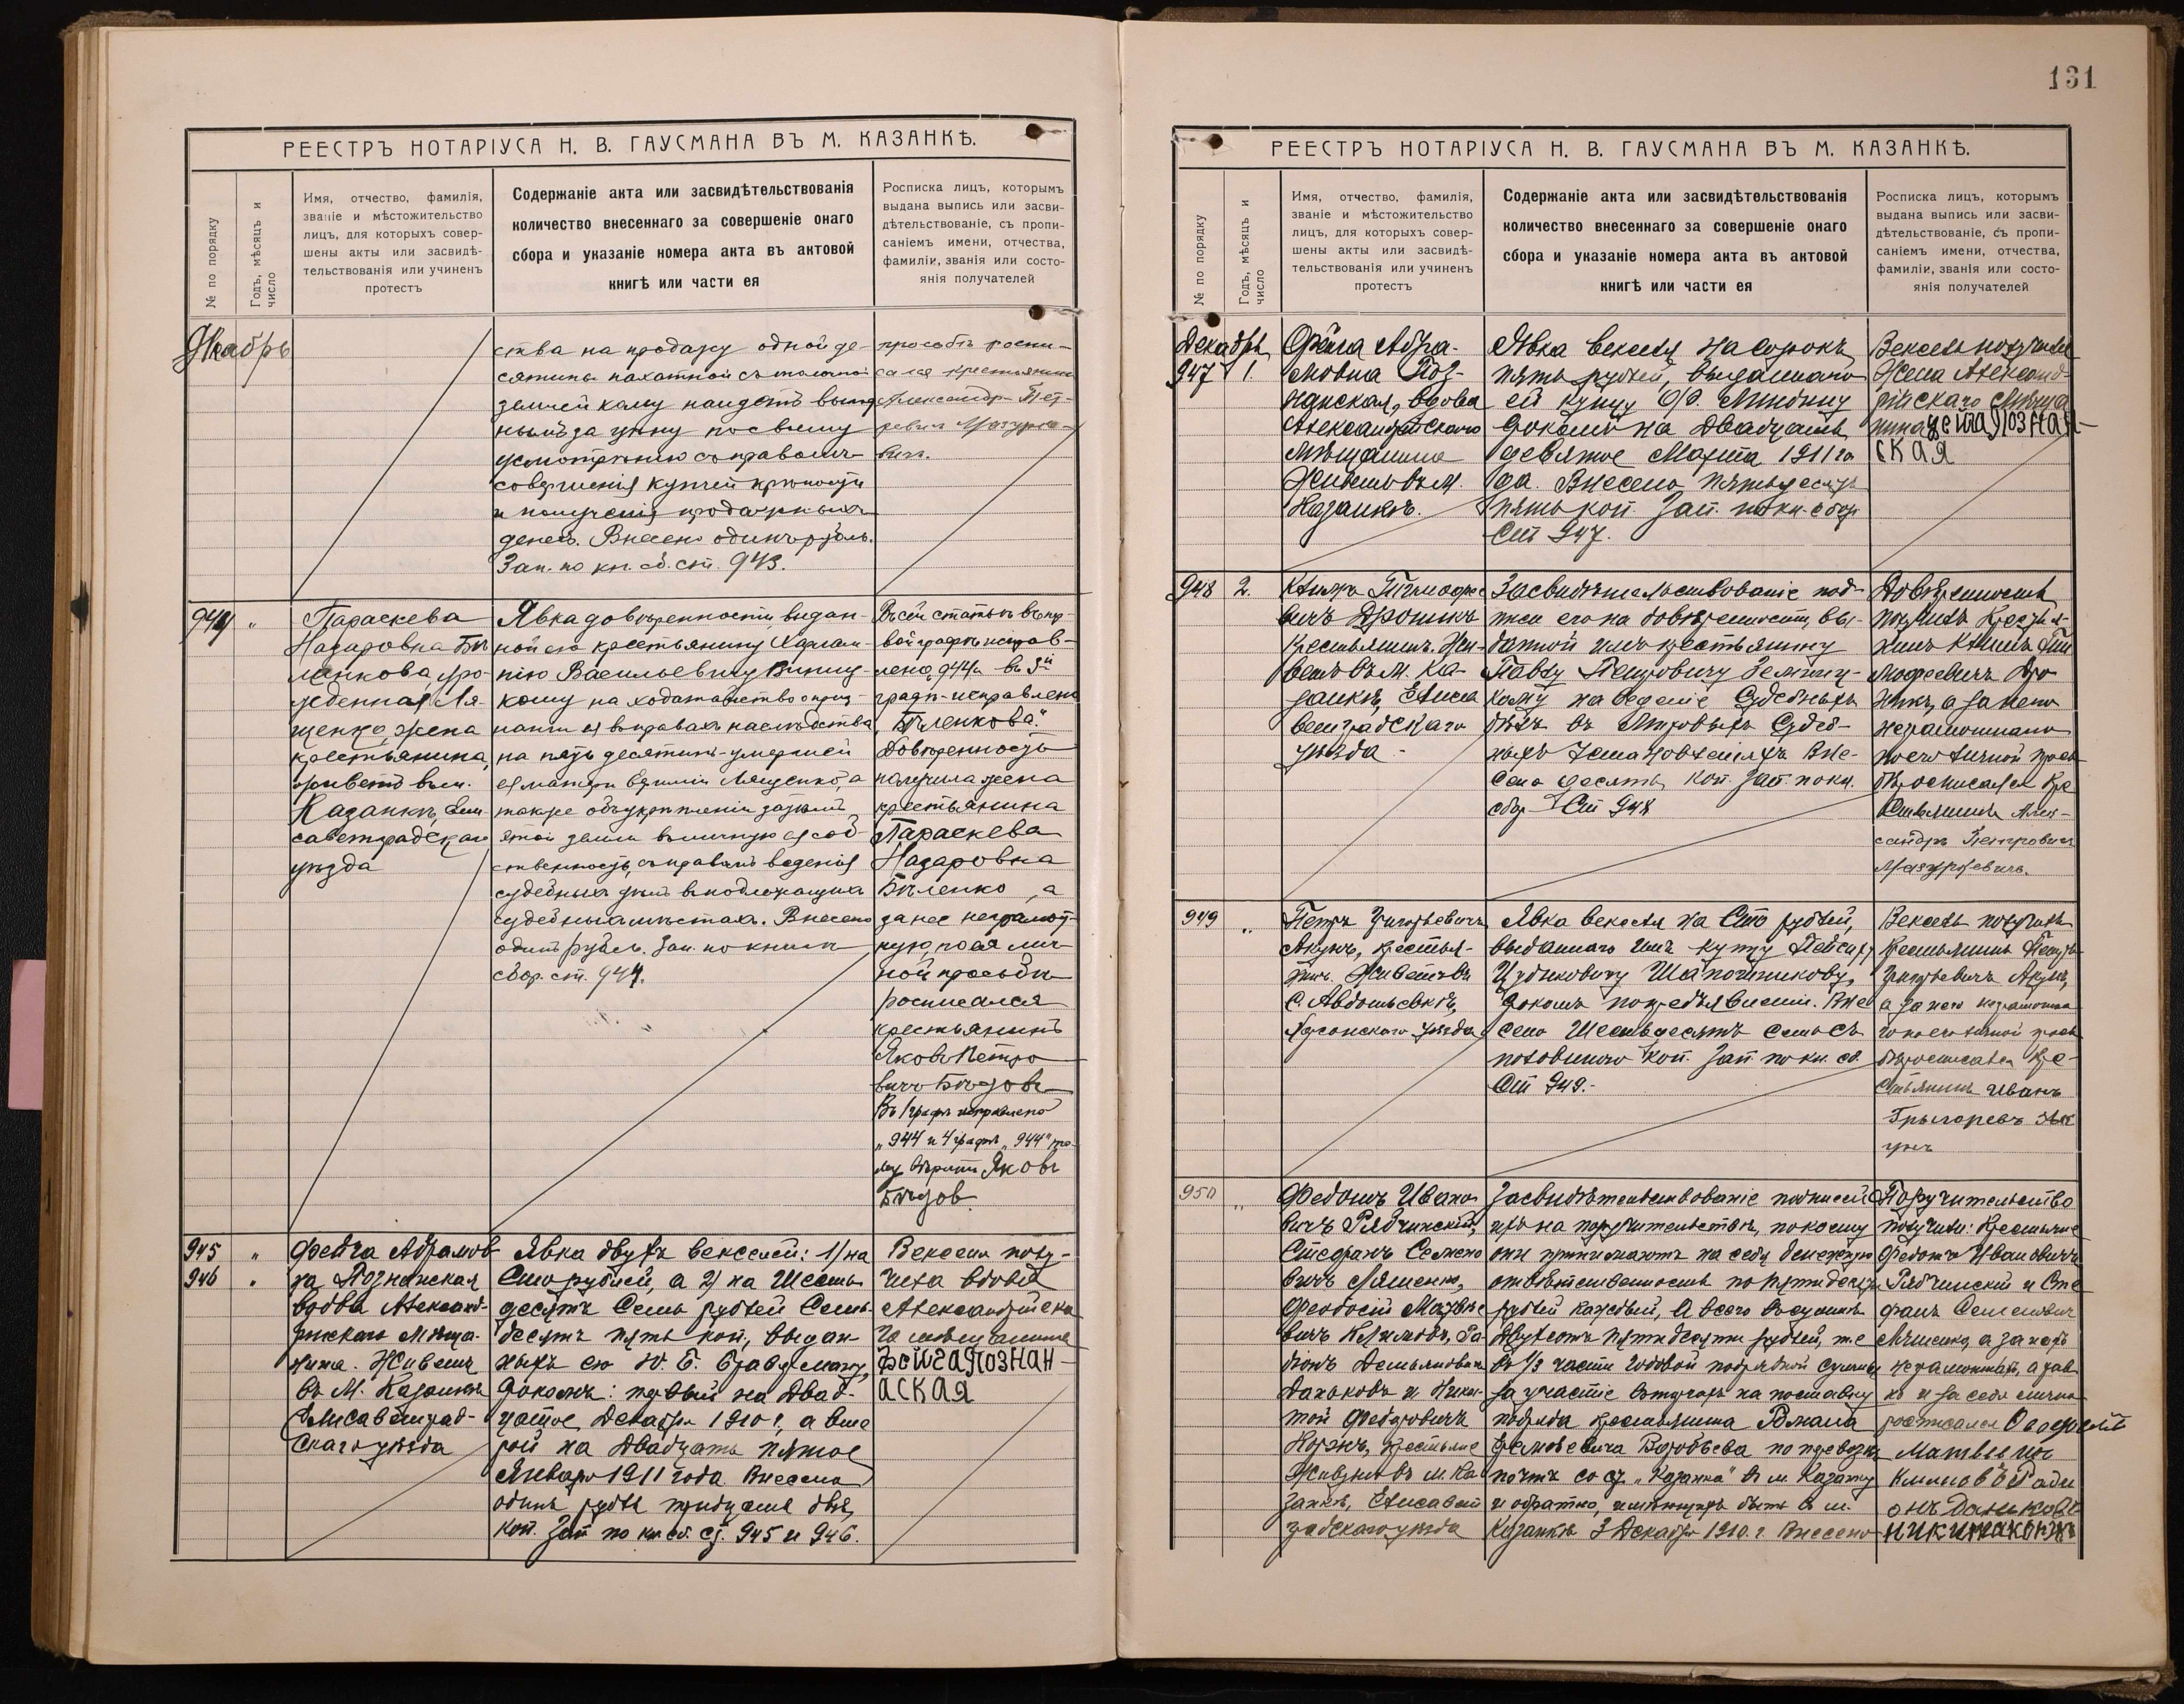 РЕЕСТРЪ НОТАРІУСА Н. В. ГАУСМАНА ВЪ М. КАЗАНКѢ.
№ по порядку
Годъ, мѣсяцъ и
число
Имя, отчество, фамилія,
званіе и мѣстожительство
лицъ, для которыхъ совер-
шены акты или засвидѣ-
тельствованія или учиненъ
протестъ
Содержаніе акта или засвидѣтельствованія
количество внесеннаго за совершеніе онаго
сбора и указаніе номера акта въ актовой
книгѣ или части ея
Росписка лицъ, которымъ
выдана выпись или засви-
дѣтельствованіе, съ пропи-
саніемъ имени, отчества,
фамиліи, званія или состо-
янія получателей
Декабрь
ства на продажу одной де-
сятины пахатной съ толочной
землей кому найдетъ выгод-
нымъ за цѣну по своему
усмотрѣнію съ правомъ
совершенія купчей крѣпости
и полученія продажныхъ
денегъ. Внесено одинъ рубль.
Зап. по кн. сб. ст. 943.
просьбѣ роспи-
сался крестьянинъ
Александръ Пет-
ровичъ Мазурке-
вичъ.
944 "
Параскева
Назаровна Бѣ-
ленкова, уро-
жденная Ля-
щенко, жена
крестьянина,
живетъ въ м.
Казанкѣ, Ели-
саветградскаго
уѣзда
Явка довѣренности, выдан-
ной ею крестьянину Харлам-
пію Васильевичу Виниц-
кому на ходатайство о приз-
наніи ея въ правахъ наслѣдства
на пять десятинъ умершей
ея матери Евфиміи Лященко, а
также объ укрѣпленіи за нею
этой земли въ личную ея соб-
ственность, съ правомъ веденія
судебныхъ дѣлъ въ подлежащихъ
судебныхъ мѣстахъ. Внесено
одинъ рубль. Зап. по книгѣ
сбор. ст. 944.
Въ сей статьѣ въ пер-
вой графѣ исправ-
лено "944" въ 3й
графѣ исправлено
"Бѣленкова".
Довѣренность
получила жена
крестьянина
Параскева
Назаровна
Бѣленко, а
за нее неграмот-
ную, по ея лич-
ной просьбѣ
росписался
крестьянинъ
Яковъ Петро
вичъ Бѣдовъ
Въ 1 графѣ исправлено
"944" и 4 графѣ "944" то-
му вѣрить Яковъ
Бѣдов.
945 "
946 "
Фейга Абрамов
на Познанская
вдова Александ-
рійскаго Мѣща-
нина. Живетъ
въ М. Казанкѣ
Елисаветград-
скаго уѣзда
Явка двухъ векселей: 1) на
Сто рублей, а 2) на Шесть-
десятъ Семь рублей Семь-
десятъ пять коп., выдан-
ныхъ ею Ю. Б.
срокомъ: первый на Двад-
цатое Декабря 1910 г., а вто
рой на Двадцать пятое
Января 1911 года. Внесено
одинъ рубль тридцать двѣ
коп. Зап по кн. сб. ст. 945 и 946.
Векселя полу-
чила вдова
Александрійска
го мѣщанина
Фейга Познан-
аская
131
РЕЕСТРЪ НОТАРІУСА Н. В. ГАУСМАНА ВЪ М. КАЗАНКѢ.
№ по порядку
Годъ, мѣсяцъ и
число
Имя, отчество, фамилія,
званіе и мѣстожительство
лицъ, для которыхъ совер-
шены акты или засвидѣ-
тельствованія или учиненъ
протестъ
Содержаніе акта или засвидѣтельствованія
количество внесеннаго за совершеніе онаго
сбора и указаніе номера акта въ актовой
книгѣ или части ея
Росписка лицъ, которымъ
выдана выпись или засви-
дѣтельствованіе, съ пропи-
саніемъ имени, отчества,
фамиліи, званія или состо-
янія получателей
Декабрь
947 1.
Фейга Абра-
мовна Поз-
нанская, вдова
Александрійскаго
Мѣщанина
Живетъ въ М.
Казанкѣ.
Явка векселя на сорокъ
пять рублей, выданнаго
ей купцу
срокомъ на Двадцать
девятое Марта 1911 го
да. Внесено пятьдесятъ
пять коп Зап. по кн. сбор
Ст 947.
Вексель получила
Жена Александ-
рійскаго Мѣща
нина Фейга Познан-
ская
948 2.
Климъ Тимофее
вичъ Дрошикъ
Крестьянинъ. Жи-
ветъ въ М. Ка-
занкѣ, Елиса
ветградскаго
уѣзда
Засвидѣтельствованіе под-
писи его на довѣренности, вы-
данной имъ крестьянину
Павлу Петровичу
на веденіе Судебныхъ
дѣлъ въ Мировыхъ Судеб-
ныхъ Установленіяхъ Вне-
сено десять коп. Зап. по кн.
сбор. Ст 948
Довѣренность
получилъ Крестья-
нинъ Климъ Ти
мофеевичъ Дро
шикъ, а за него
неграмотнаго
по его личной прось
бѣ росписался Кре
стьянинъ Алек-
сандръ Петровичъ
Мазуркевичъ.
949 "
Петръ Григорьевичъ
Акунъ, Крестья-
нинъ. Живетъ въ
С. Авдотьевкѣ,
Херсонскаго уѣзда
Явка векселя на Сто рублей,
выданнаго имъ купцу
Шапошникову,
срокомъ по предъявленіи. Вне
сено Шестьдесятъ семь съ
половиною коп. Зап. по кн. сб.
Ст 949.-
Вексель получилъ
Крестьянинъ Петръ
Григорьевичъ Акунъ,
а за него неграмотна
го по его личной прось
бѣ росписался Кре-
стьянинъ Иванъ
Грыгоревъ Ак
унъ
950 "
Федотъ Ивано
вичъ Рябчинскій,
Стефанъ Семено
вичъ Ляшенко,
Феодосій Матвѣе
вичъ Климовъ, Ра
діонъ Демьяновичъ
Даньковъ и Ники-
той Федоровичъ
Коржъ, Крестьяне
Живутъ въ м. Ка
занкѣ, Елисавет
градскаго уѣзда
Засвидѣтельствованіе подписей
ихъ на поручительствѣ, по коему
они принимаютъ на себя денежную
отвѣтственность по пятидесяти
рублей каждый, а всего въ суммѣ
двухсотъ пятидесяти рублей, т.е
въ 1/3 части годовой подрядной суммы,
за участіе въ торгахъ на поставку
подряда крестьянина Романа
Воробьева по перевозкѣ
почтъ со ст. "Казанка" въ м. Казанку
и обратно, имѣющихъ быть въ м.
Казанкѣ 3 Декабря 1910 г. Внесено
Поручительство
получили: Крестьяне
Федотъ Ивановичъ
Рябчинскій и Сте
фанъ Семеновичъ
Ляшенко, а за нихъ
неграмотныхъ, а рав
но и за себя лично
росписался Феодосій
Матвѣевичъ
Климов Ради
онъ Даньковъ
Никита Коржъ